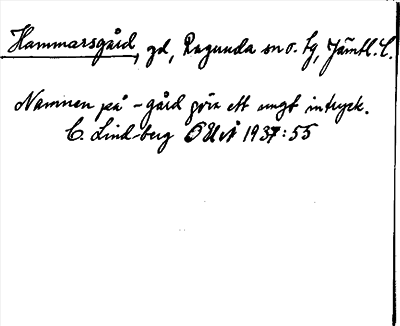 Hammarsgård, gd, Ragunda sn o. tg, Jämtl. l.
Namnen på -gård göra ett ungt intryck.
C. Lindberg OUÅ 1937:55